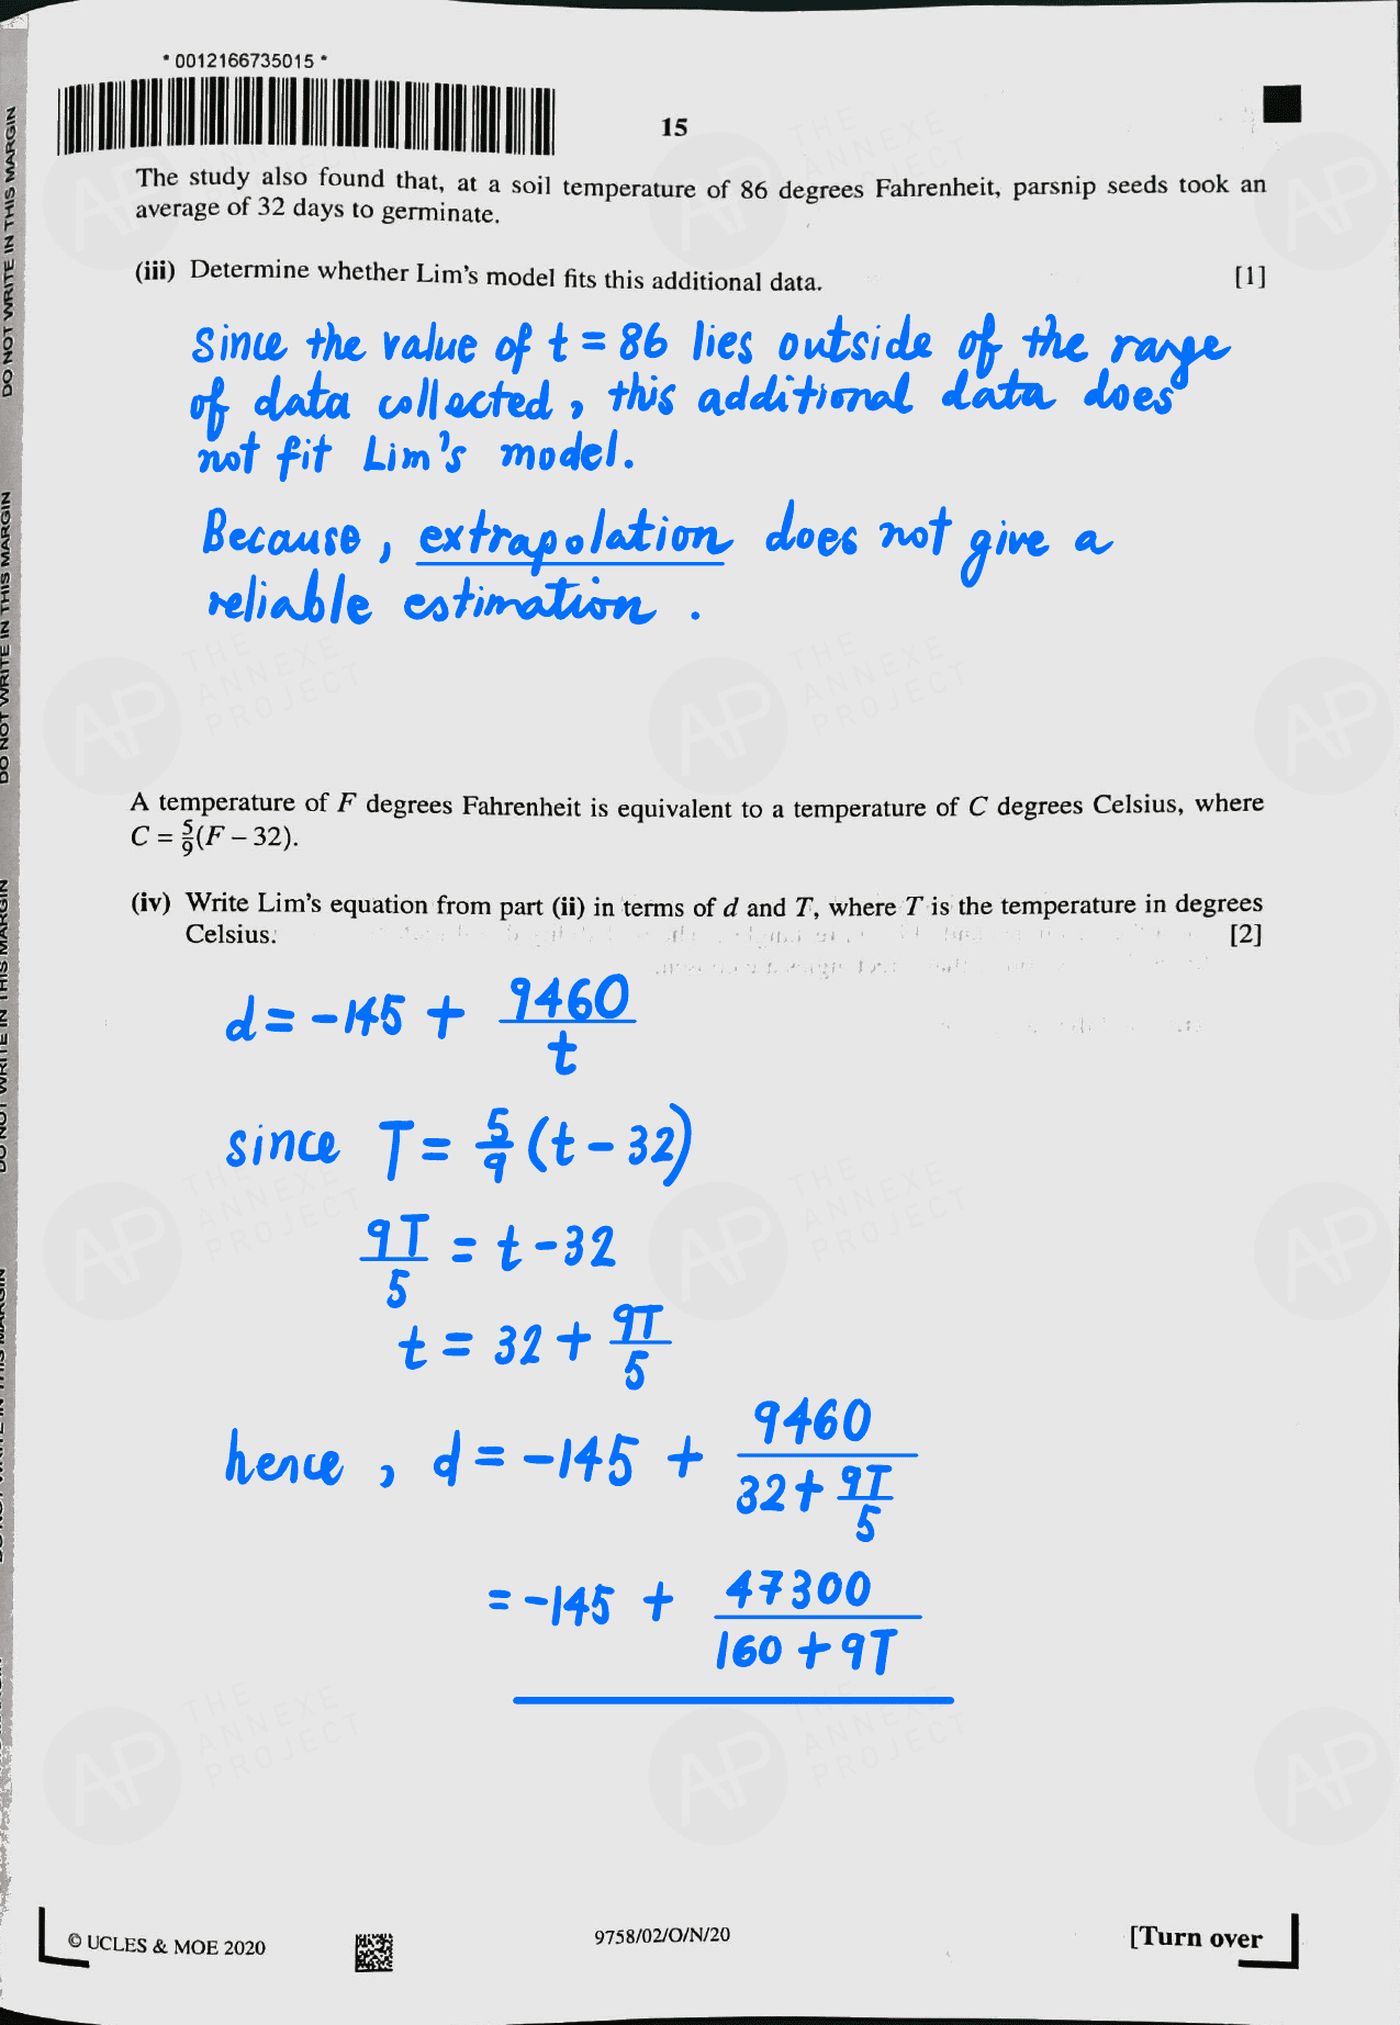 * 0012166735015 *
15
DO NOT WRITE IN THIS MARGIN
The study also found that, at a soil temperature of 86 degrees Fahrenheit, parsnip seeds took an
average of 32 days to germinate.
(iii) Determine whether Lim's model fits this additional data. [1]
Since the value of t = 86 lies outside of the range
of data collected, this additional data does
not fit Lim's model.
Because, extrapolation does not give a
reliable estimation.
DO NOT WRITE IN THIS MARGIN
A temperature of F degrees Fahrenheit is equivalent to a temperature of C degrees Celsius, where
C = 5/9(F – 32).
(iv) Write Lim's equation from part (ii) in terms of d and T, where T is the temperature in degrees
Celsius. [2]
d = -145 + 9460/t
since T = 5/9 (t - 32)
9T/5 = t - 32
t = 32 + 9T/5
hence, d = -145 + 9460/(32 + 9T/5)
= -145 + 47300/(160 + 9T)
DO NOT WRITE IN THIS MARGIN
AP THE ANNEXE PROJECT
© UCLES & MOE 2020
9758/02/O/N/20
[Turn over